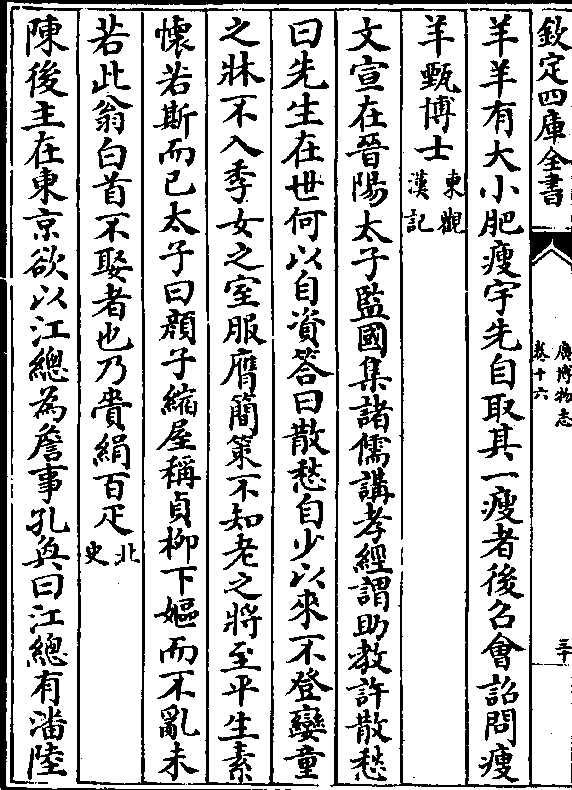 欽定四庫全書
廣博物志
卷十六
三十
羊羊有大小肥瘦宇先自取其一瘦者後召會詔問瘦
羊甄博士東觀
漢記
文宣在晉陽太子監國集諸儒講孝經謂助教許散愁
曰先生在世何以自資答曰散愁自少以來不登孌童
之牀不入季女之室服膺簡策不知老之將至平生素
懷若斯而已太子曰顔子縮屋稱貞柳下嫗而不亂未
若此翁白首不娶者也乃賚絹百疋北
史
陳後主在東京欲以江總為詹事孔奐曰江總有潘陸